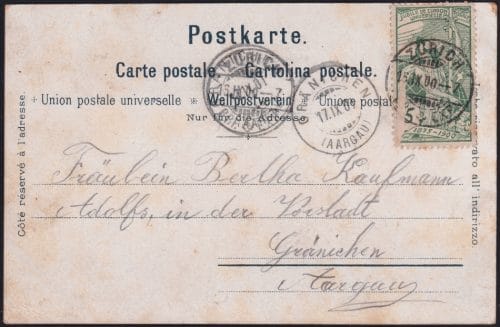 Postkarte.
Carte postale. Cartolina postale.
Union postale universelle Weltpostverein Union postale
Nur für die Adresse
Côté réservé à l'adresse.
all' indirizzo
ZÜRICH
GRÄNICHEN
17.IX.00
(AARGAU)
ZÜRICH
16.IX.00.-7
JUBILÉ DE L'UNION
POSTALE UNIVERSELLE
5
1875-1900
Fräulein Bertha Kaufmann
Adolfs, in der Vorstadt
Gränichen
Aargau